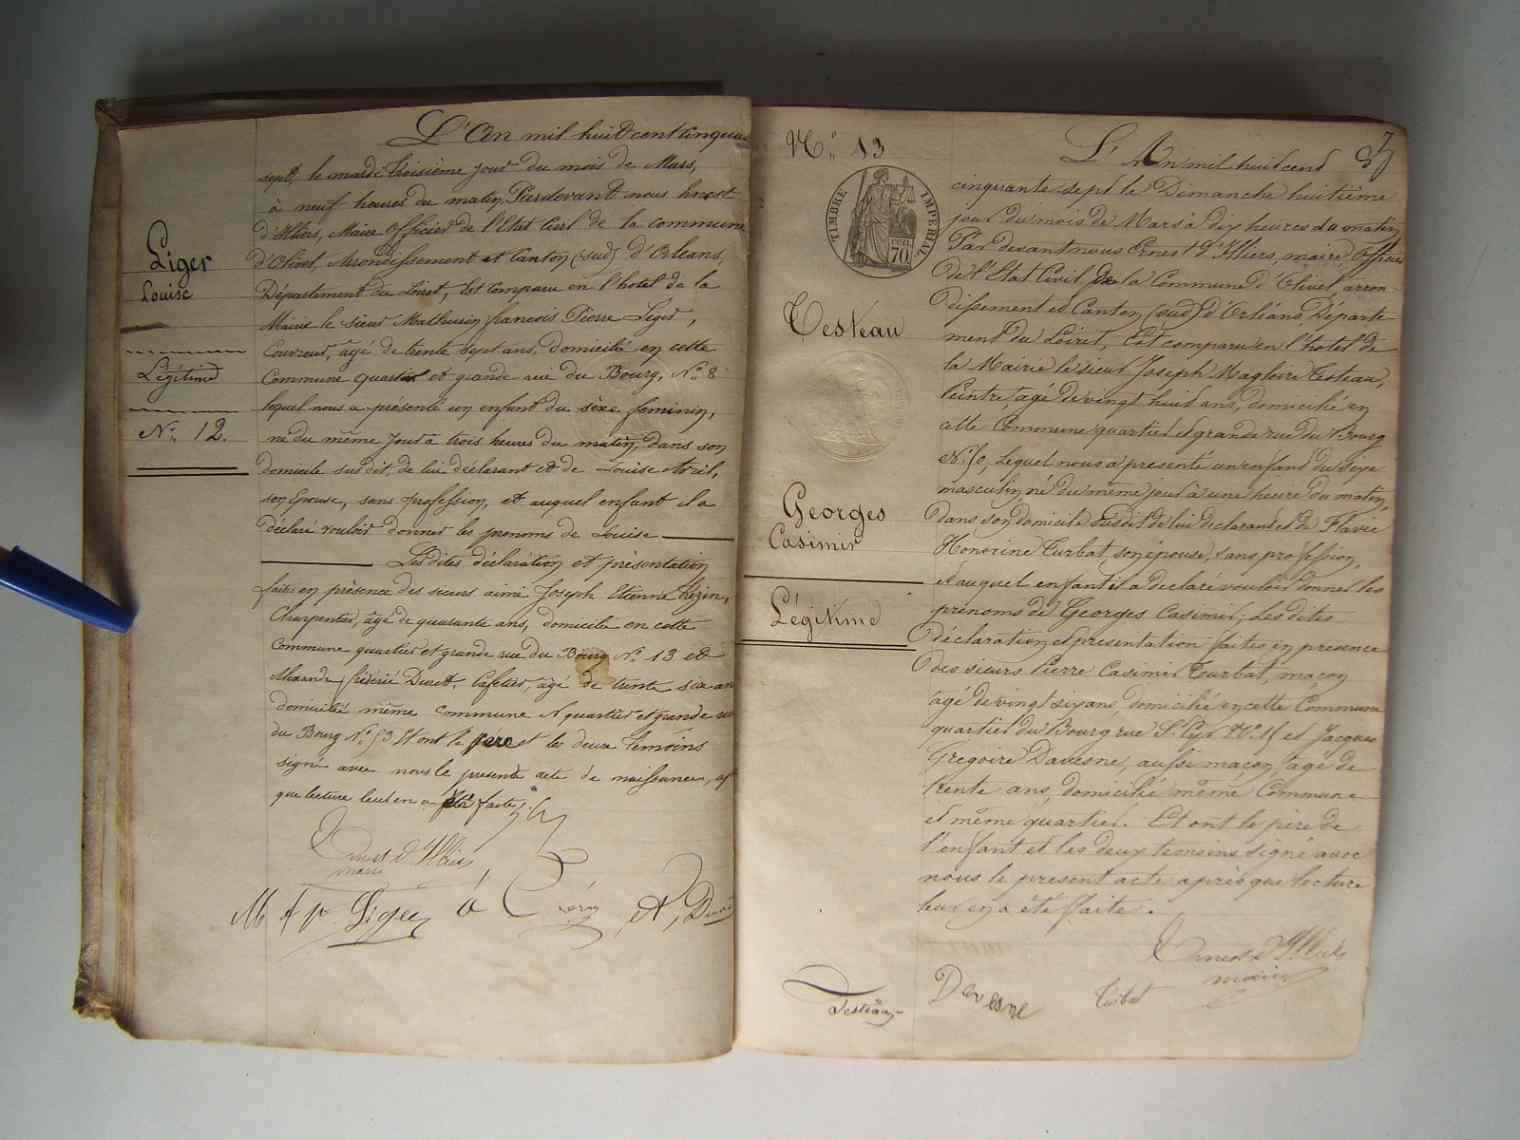 L'An mil huit cent cinquante
sept, le mardi troisième jour du mois de Mars,
à neuf heures du matin, Pardevant nous Ernest
d'Illiers, Maire officier de l'Etat Civil de la commune
d'Olivet, Arrondissement et Canton (sud) d'Orléans,
Département du Loiret, Est comparu en l'hotel de la
Mairie le sieur Mathurin françois Pierre Léger,
Couvreur, âgé de trente sept ans, domicilié en cette
Commune quartier et grande rue du Bourg, No. 8
lequel nous a présenté un enfant du sexe feminin,
né du même jour à trois heures du matin, dans son
domicile susdit, de lui déclarant et de Louise Avril,
son Epouse, sans profession, et auquel enfant il a
déclaré vouloir donner les prenoms de Louise
Lesdites déclaration et présentation
faites en présence des sieurs aimé Joseph Etienne
Charpentier, âgé de quarante ans, domicilié en cette
commune quartier et grande rue du Bourg No. 13 et
Duret, Cafetier, âgé de trente six ans
domicilié même commune quartier et grande rue
du Bourg No. 53 Et ont le père et les deux temoins
signé avec nous le present acte de naissance, après
que lecture leur en a été faite,
Léger
Louise
Légitime
No. 12.
Ernest d'Illiers
maire
M f p Léger
A, Duret
No. 13
TIMBRE IMPERIAL
70
Testeau
Georges
Casimir
Légitime
L'An mil huit cent
cinquante sept le Dimanche huitième
jour du mois de Mars à dix heures du matin
Par devant nous Ernest d'Illiers, maire, Officier
de l'Etat Civil de la Commune d'Olivet, arron-
dissement et Canton (sud) d'Orléans, Départe
ment du Loiret, Est comparu en l'hotel de
la Mairie le sieur Joseph Magloire Testeau,
Peintre, âgé de vingt huit ans, domicilié en
cette Commune quartier et grande rue du Bourg
No. Lequel nous a présenté un enfant du sexe
masculin, né du même jour à une heure du matin,
dans son domicile susdit de lui declarant et de Flavie
Honorine Turbat, son épouse, sans profession,
et auquel enfant il a declaré vouloir donner les
prénoms de Georges Casimir; Les dites
déclaration et presentation faites en presence
des sieurs Pierre Casimir Tourbat, maçon
âgé de vingt six ans, domicilié en cette Commune
quartier du Bourg rue et Jacques
Gregoire Davesne, aussi maçon, âgé de
trente ans, domicilié même Commune
et même quartier. Et ont le père de
l'enfant et les deux temoins signé avec
nous le present acte après que lecture
leur en a été faite.
Ernest d'Illiers
maire
Testeau
Davesne
Turbat